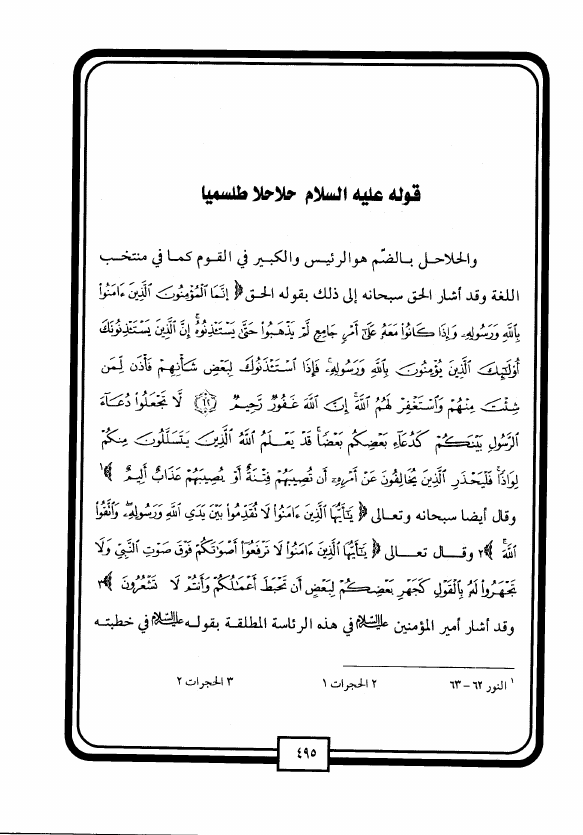 قوله عليه السلام حلاحلا طلسميا
والحلاحل بالضّم هو الرئيس والكبير في القوم كما في منتخب
اللغة وقد أشار الحق سبحانه إلى ذلك بقوله الحق ﴿ إِنَّمَا ٱلْمُؤْمِنُونَ ٱلَّذِينَ ءَامَنُوا۟
بِٱللَّهِ وَرَسُولِهِۦ وَإِذَا كَانُوا۟ مَعَهُۥ عَلَىٰٓ أَمْرٍ جَامِعٍ لَّمْ يَذْهَبُوا۟ حَتَّىٰ يَسْتَـْٔذِنُوهُ ۚ إِنَّ ٱلَّذِينَ يَسْتَـْٔذِنُونَكَ
أُو۟لَـٰٓئِكَ ٱلَّذِينَ يُؤْمِنُونَ بِٱللَّهِ وَرَسُولِهِۦ ۚ فَإِذَا ٱسْتَـْٔذَنُوكَ لِبَعْضِ شَأْنِهِمْ فَأْذَن لِّمَن
شِئْتَ مِنْهُمْ وَٱسْتَغْفِرْ لَهُمُ ٱللَّهَ ۚ إِنَّ ٱللَّهَ غَفُورٌ رَّحِيمٌ ﴿٦٢﴾ لَّا تَجْعَلُوا۟ دُعَآءَ
ٱلرَّسُولِ بَيْنَكُمْ كَدُعَآءِ بَعْضِكُم بَعْضًا ۚ قَدْ يَعْلَمُ ٱللَّهُ ٱلَّذِينَ يَتَسَلَّلُونَ مِنكُمْ
لِوَاذًا ۚ فَلْيَحْذَرِ ٱلَّذِينَ يُخَالِفُونَ عَنْ أَمْرِهِۦٓ أَن تُصِيبَهُمْ فِتْنَةٌ أَوْ يُصِيبَهُمْ عَذَابٌ أَلِيمٌ ﴾١
وقال أيضا سبحانه وتعالى ﴿ يَـٰٓأَيُّهَا ٱلَّذِينَ ءَامَنُوا۟ لَا تُقَدِّمُوا۟ بَيْنَ يَدَىِ ٱللَّهِ وَرَسُولِهِۦ ۖ وَٱتَّقُوا۟
ٱللَّهَ ۚ ﴾٢ وقال تعالى ﴿ يَـٰٓأَيُّهَا ٱلَّذِينَ ءَامَنُوا۟ لَا تَرْفَعُوٓا۟ أَصْوَٰتَكُمْ فَوْقَ صَوْتِ ٱلنَّبِىِّ وَلَا
تَجْهَرُوا۟ لَهُۥ بِٱلْقَوْلِ كَجَهْرِ بَعْضِكُمْ لِبَعْضٍ أَن تَحْبَطَ أَعْمَـٰلُكُمْ وَأَنتُمْ لَا تَشْعُرُونَ ﴾٣
وقد أشار أمير المؤمنين عليه السلام في هذه الرئاسة المطلقة بقوله عليه السلام في خطبته
١ النور ٦٢-٦٣ ٢ الحجرات ١ ٣ الحجرات ٢
٤٩٥